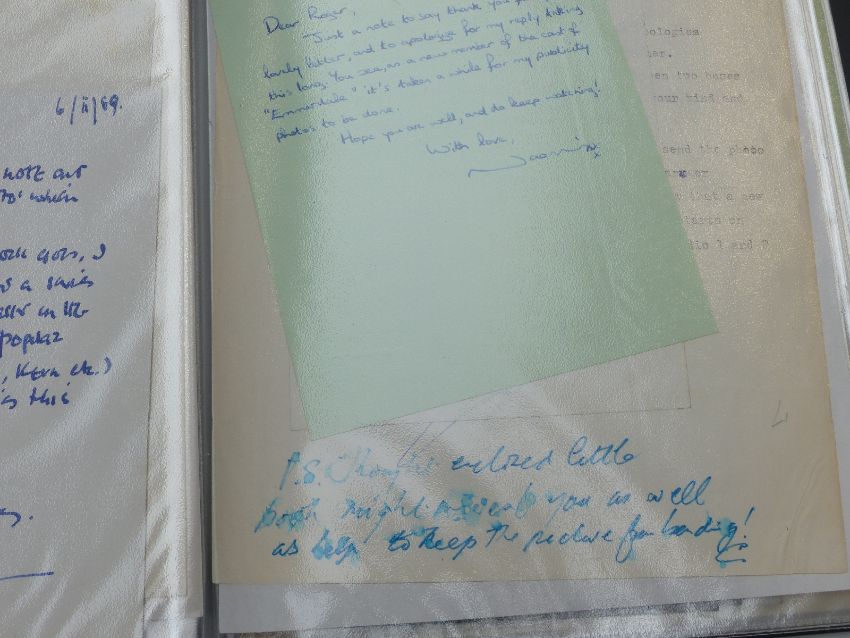 6/ii/89.
note
when
I
a series
popular
, Kern etc.)
as this
Dear Roger,
Just a note to say thank you
lovely letter, and to apologise for my reply taking
this long. You see, as a new member of the cast of
"Emmerdale" it's taken a while for my publicity
photos to be done.
Hope you are well, and do keep watching!
With love,
Naomi xx
ologies
er.
en two bases
our kind and
send the photo
that a new
on
dio 1 and 2
P.S. Thought enclosed little
book might interest you as well
as help to keep the picture from bending!